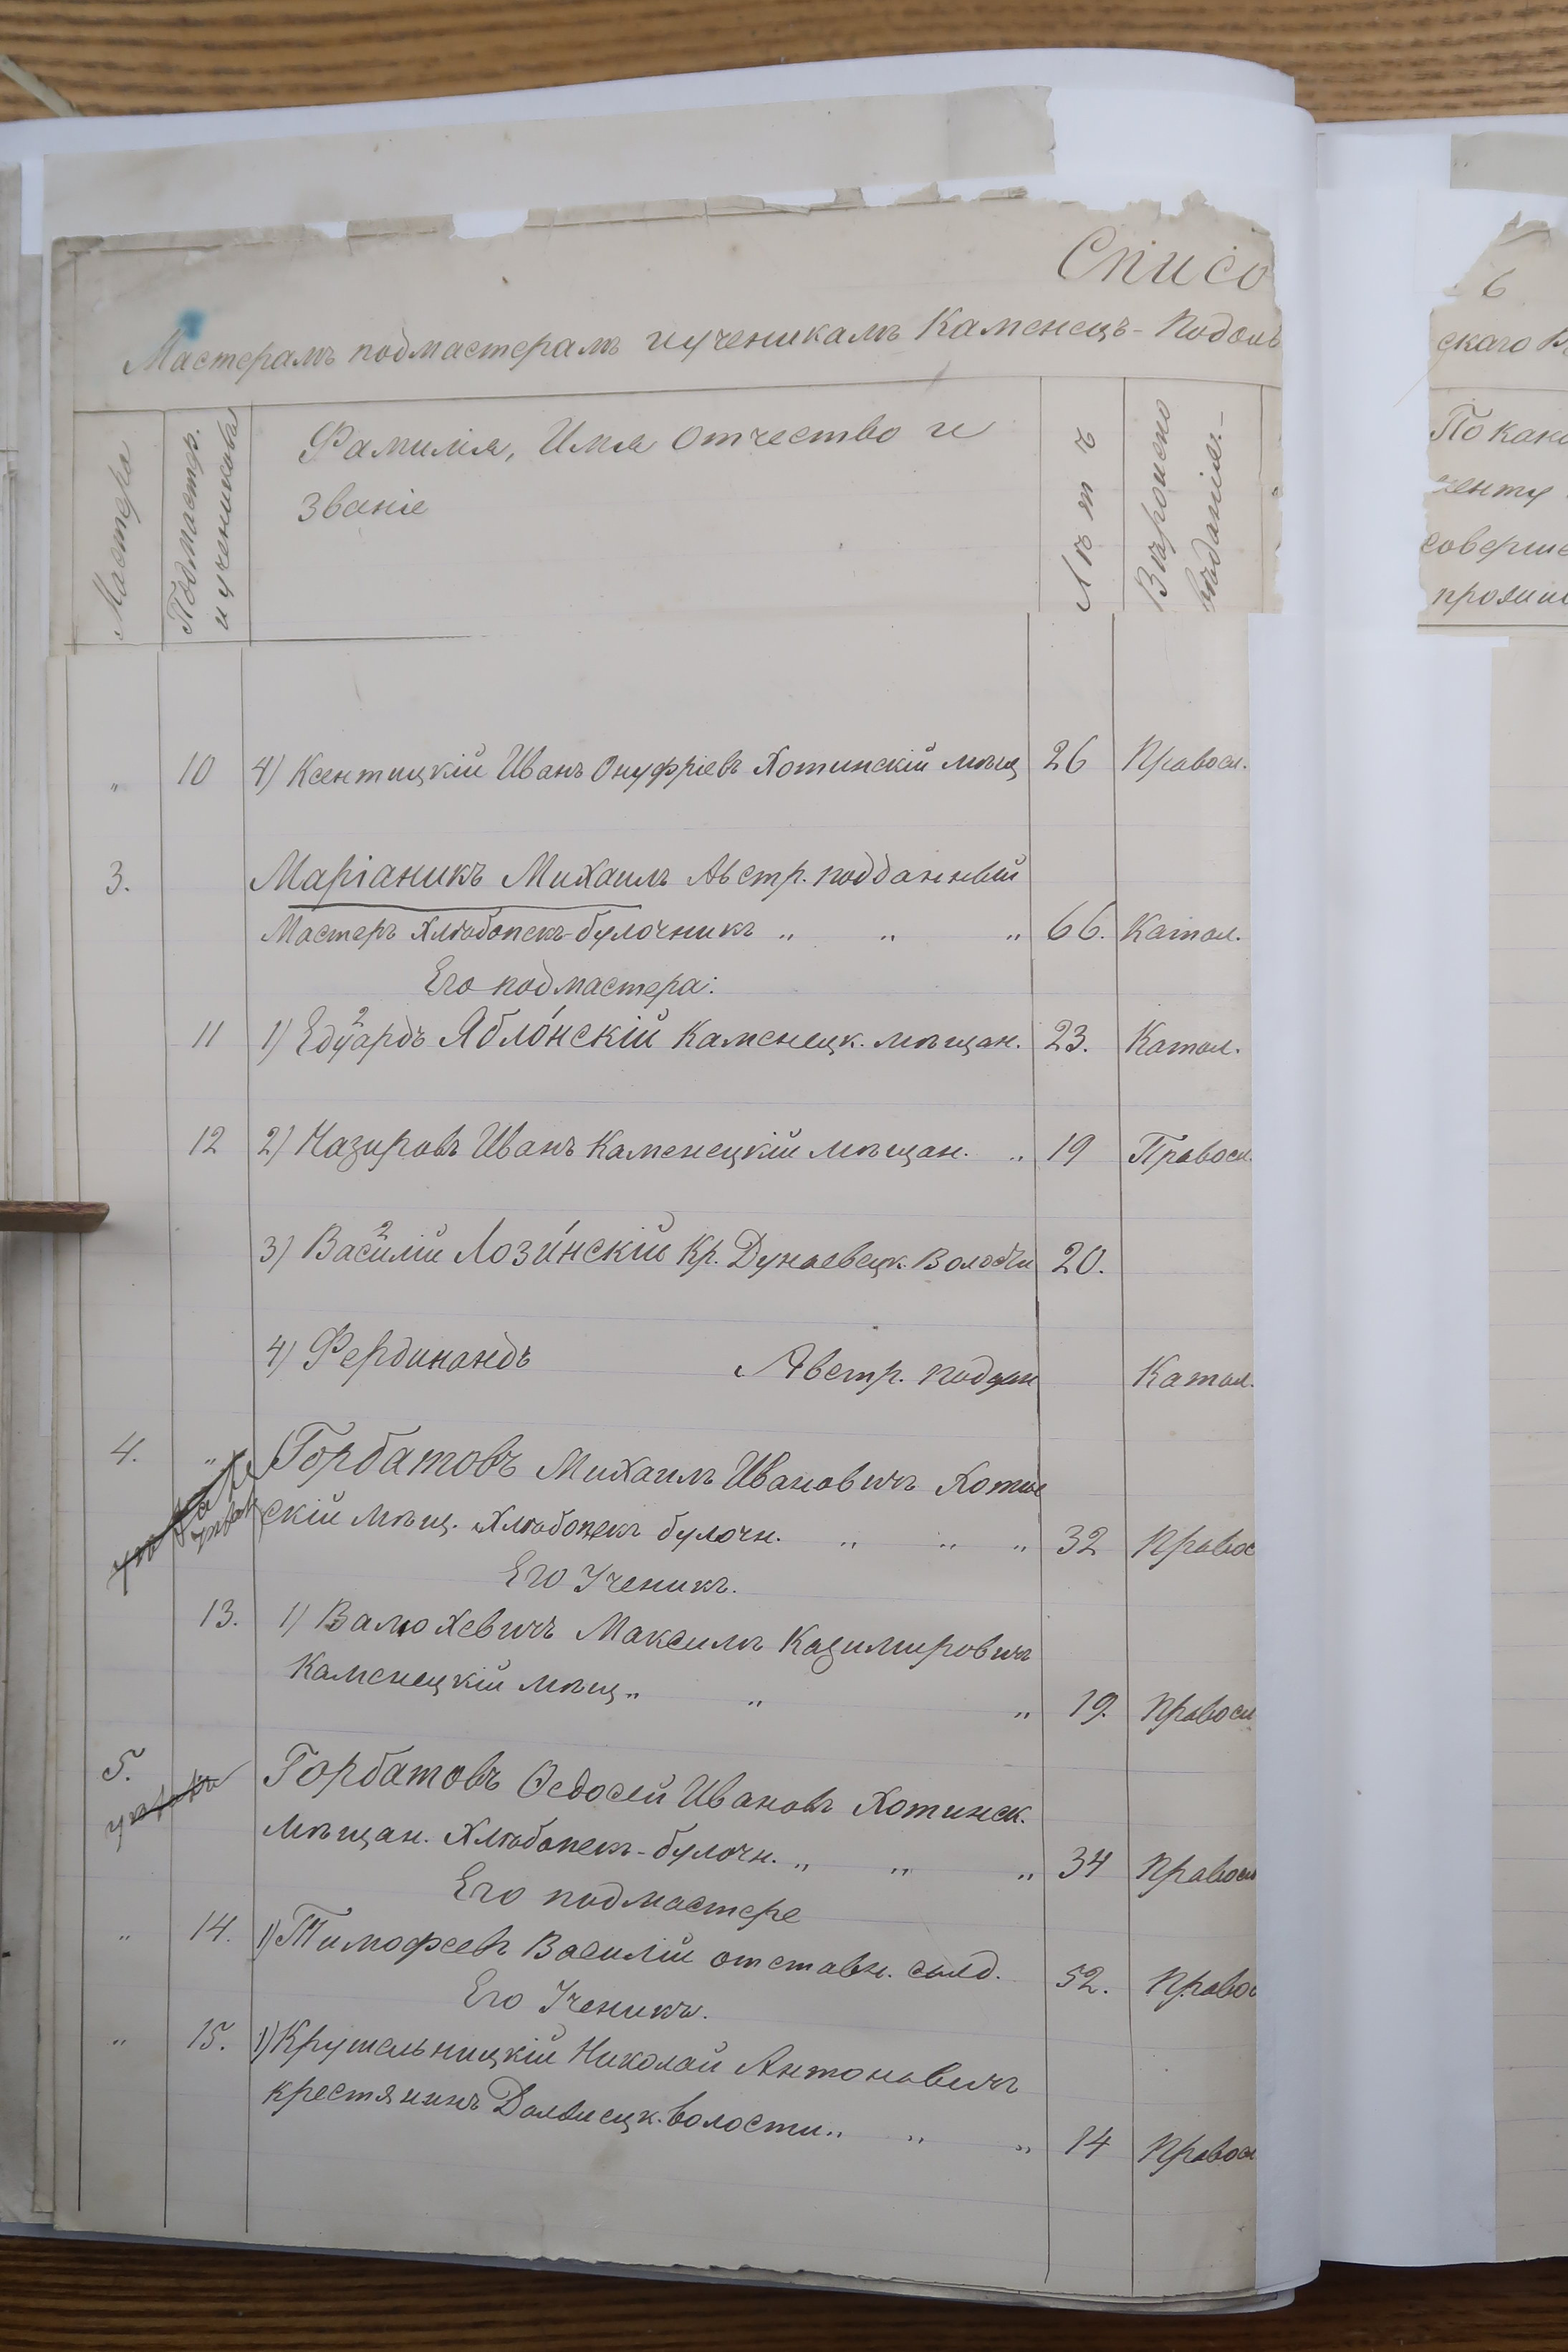 Списо
Мастерамъ подмастерамъ и ученикамъ Каменецъ-Подоль
Мастера
Подмастер.
и учениковъ
Фамилія, Имя Отчество и
Званіе
Лѣтъ
Вѣроиспо
вѣданія.-
„ 10 4) Ксентицкій Иванъ Онуфріевъ Хотинскій мѣщ 26 Правосл.
3. Маріаникъ Михаилъ Австр. подданный
Мастеръ Хлѣбопекъ-булочникъ „ „ „ 66. Катол.
Его подмастера:
11 1) Едуардъ Яблонскій Каменецк. мѣщан. 23. Катол.
12 2) Назаровъ Иванъ Каменецкій мѣщан. „ 19 Правосл.
3) Василій Лозинскій Кр. Дунаевецк. Волости 20.
4) Фердинандъ Австр. поддан Катол.
4. „ Горбатовъ Михаилъ Ивановичъ Хотин
скій мѣщ. Хлѣбопекъ булочн. „ „ „ 32 Правос
Его Ученикъ.
13. 1) Валюхевичъ Максимъ Казимировичъ
Каменецкій мѣщ „ „ „ 19. Правосл
5. Горбатовъ Ѳедосей Ивановъ Хотинск.
мѣщан. Хлѣбопекъ-булочн. „ „ „ 34 Правосл
Его подмастере
„ 14. 1) Тимофеевъ Василій отставн. солд. 52. Правос
Его Ученикъ.
„ 15. 1) Крутельницкій Николай Антоновичъ
крестянинъ волости „ „ „ 14 Правосл
6
скаго
По како
менту
соверше